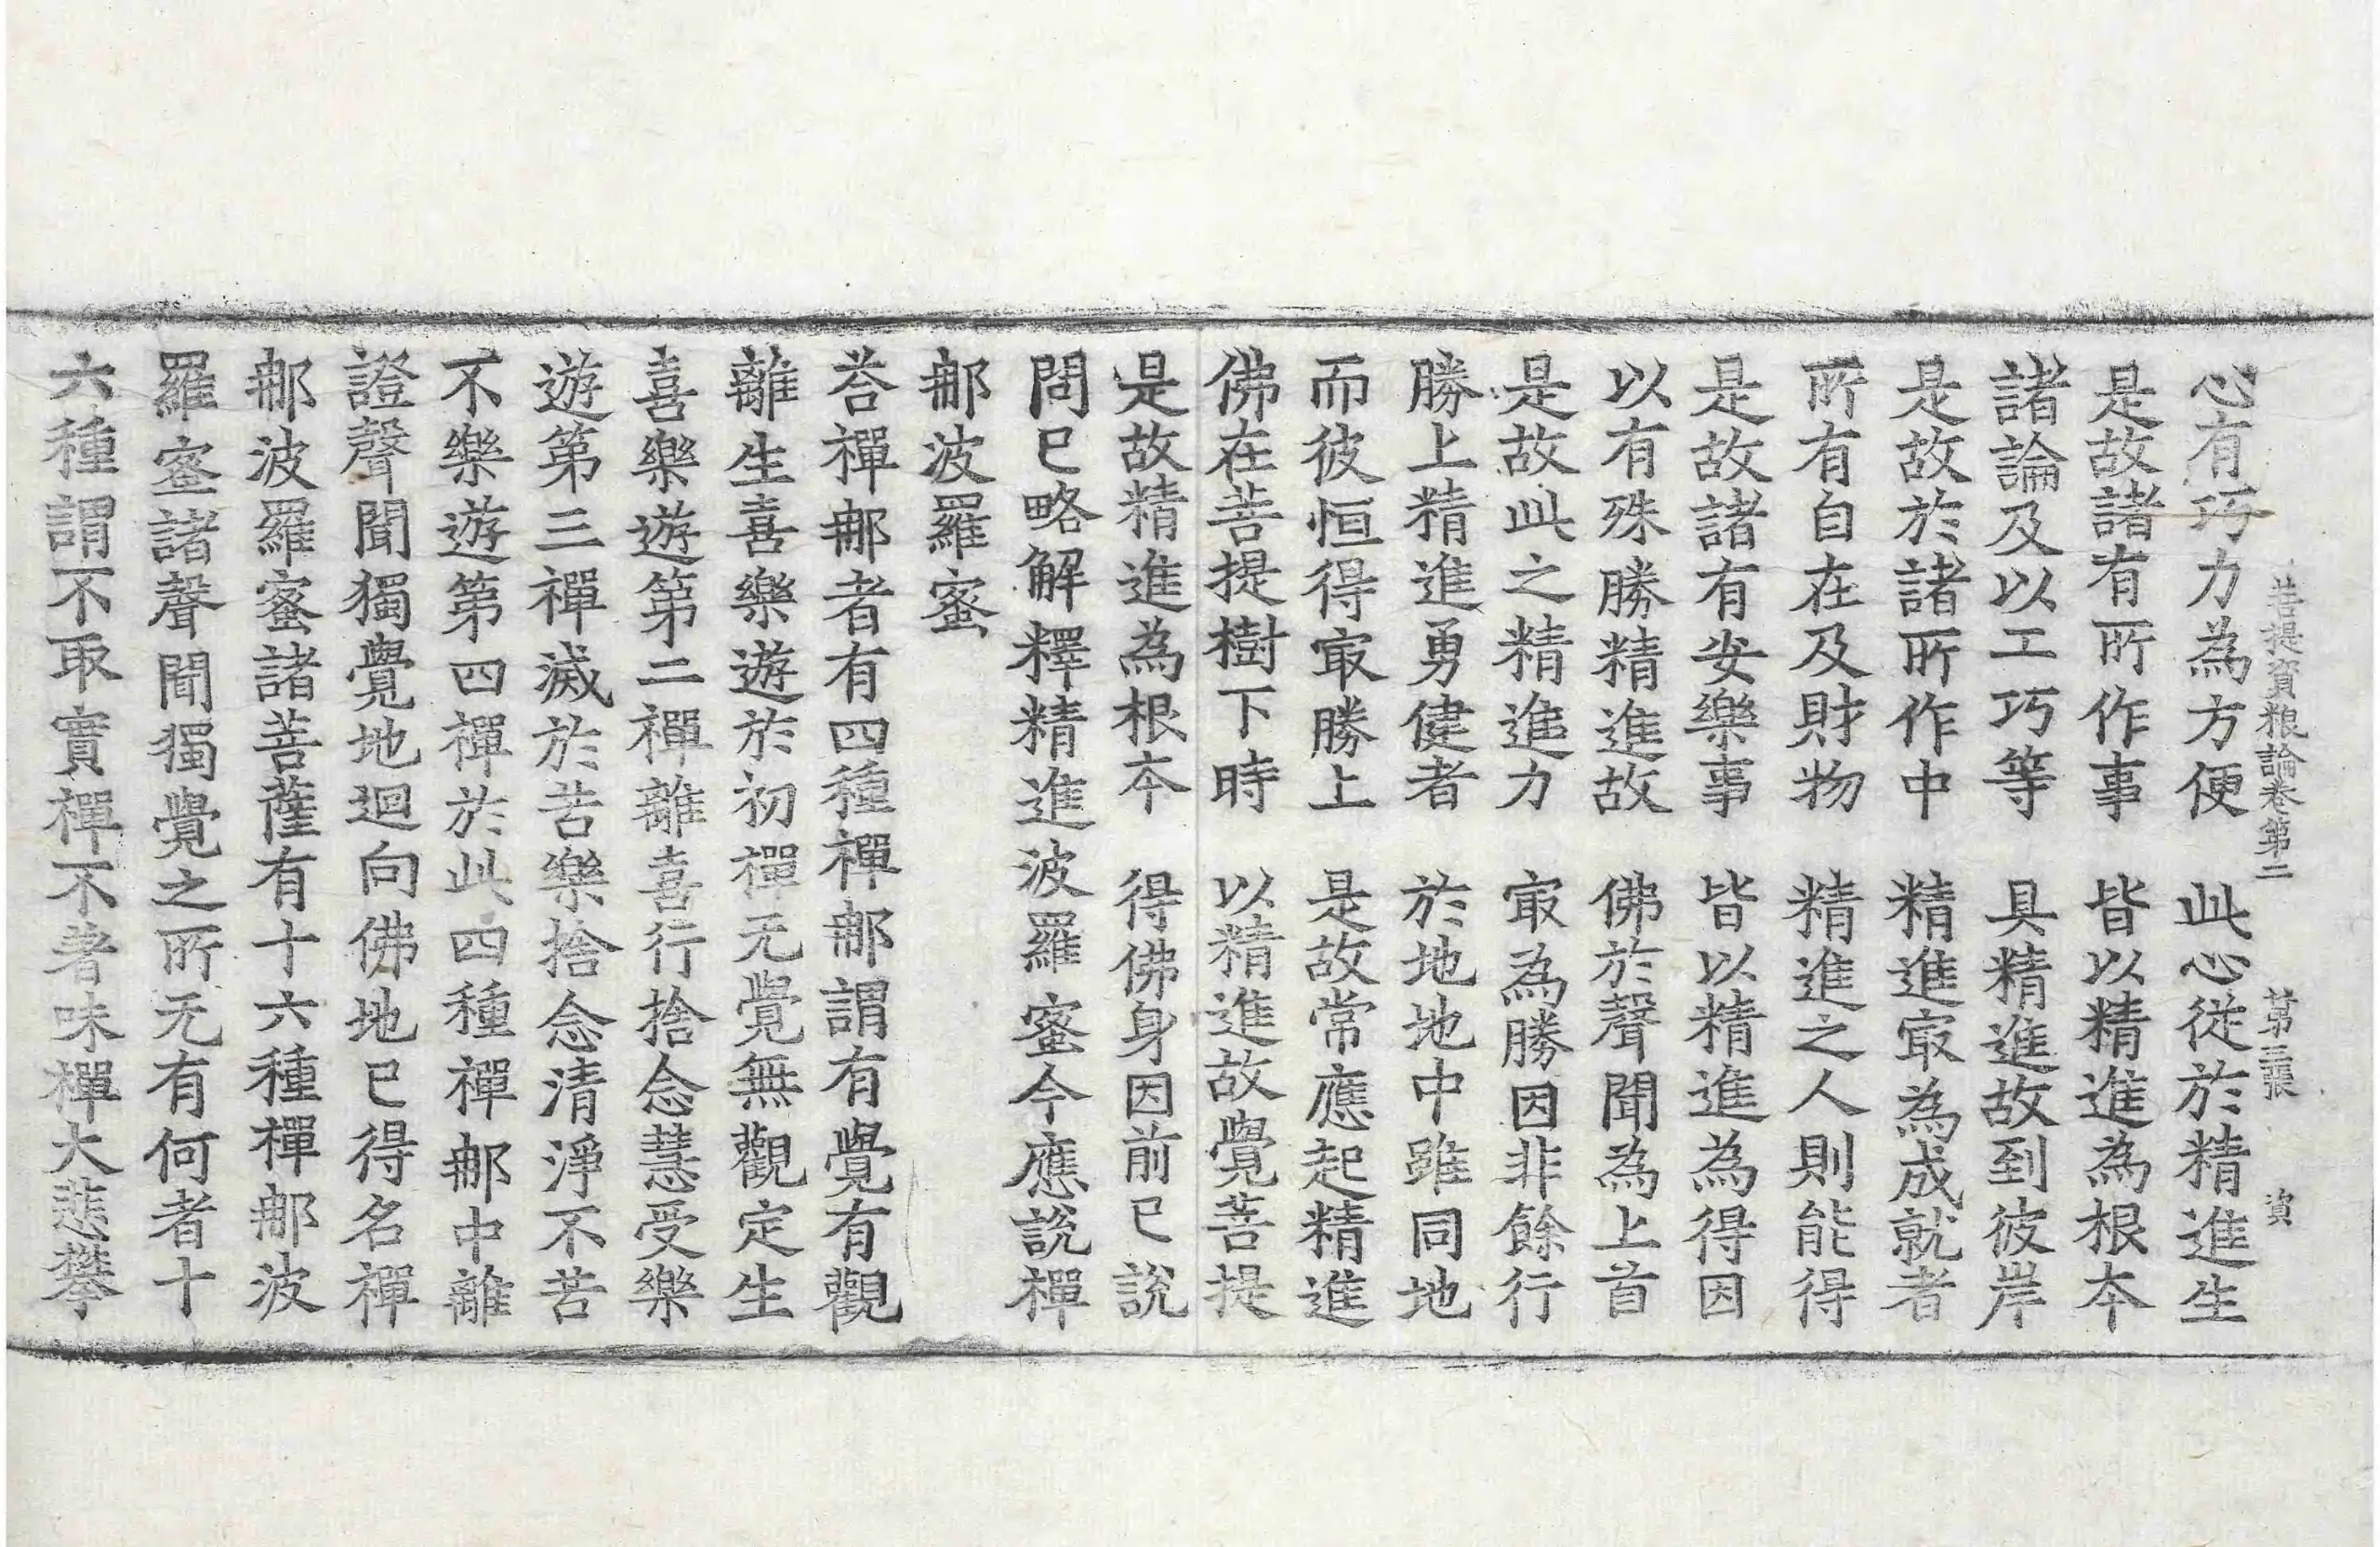 菩提資粮論卷第二　第三張　資
心有巧力為方便　此心從於精進生
是故諸有所作事　皆以精進為根本
諸論及以工巧等　具精進故到彼岸
是故於諸所作中　精進㝡為成就者
所有自在及財物　精進之人則能得
是故諸有安樂事　皆以精進為得因
以有殊勝精進故　佛於聲聞為上首
是故此之精進力　㝡為勝因非餘行
勝上精進勇健者　於地地中雖同地
而彼恒得㝡勝上　是故常應起精進
佛在菩提樹下時　以精進故覺菩提
是故精進為根本　得佛身因前已說
問已略解釋精進波羅蜜今應說禪
那波羅蜜
荅禪那者有四種禪那謂有覺有觀
離生喜樂遊於初禪无覺無觀定生
喜樂遊第二禪離喜行捨念慧受樂
遊第三禪滅於苦樂捨念清淨不苦
不樂遊第四禪於此四種禪那中離
證聲聞獨覺地迴向佛地已得名禪
那波羅蜜諸菩薩有十六種禪那波
羅蜜諸聲聞獨覺之所无有何者十
六種謂不取實禪不著味禪大悲攀